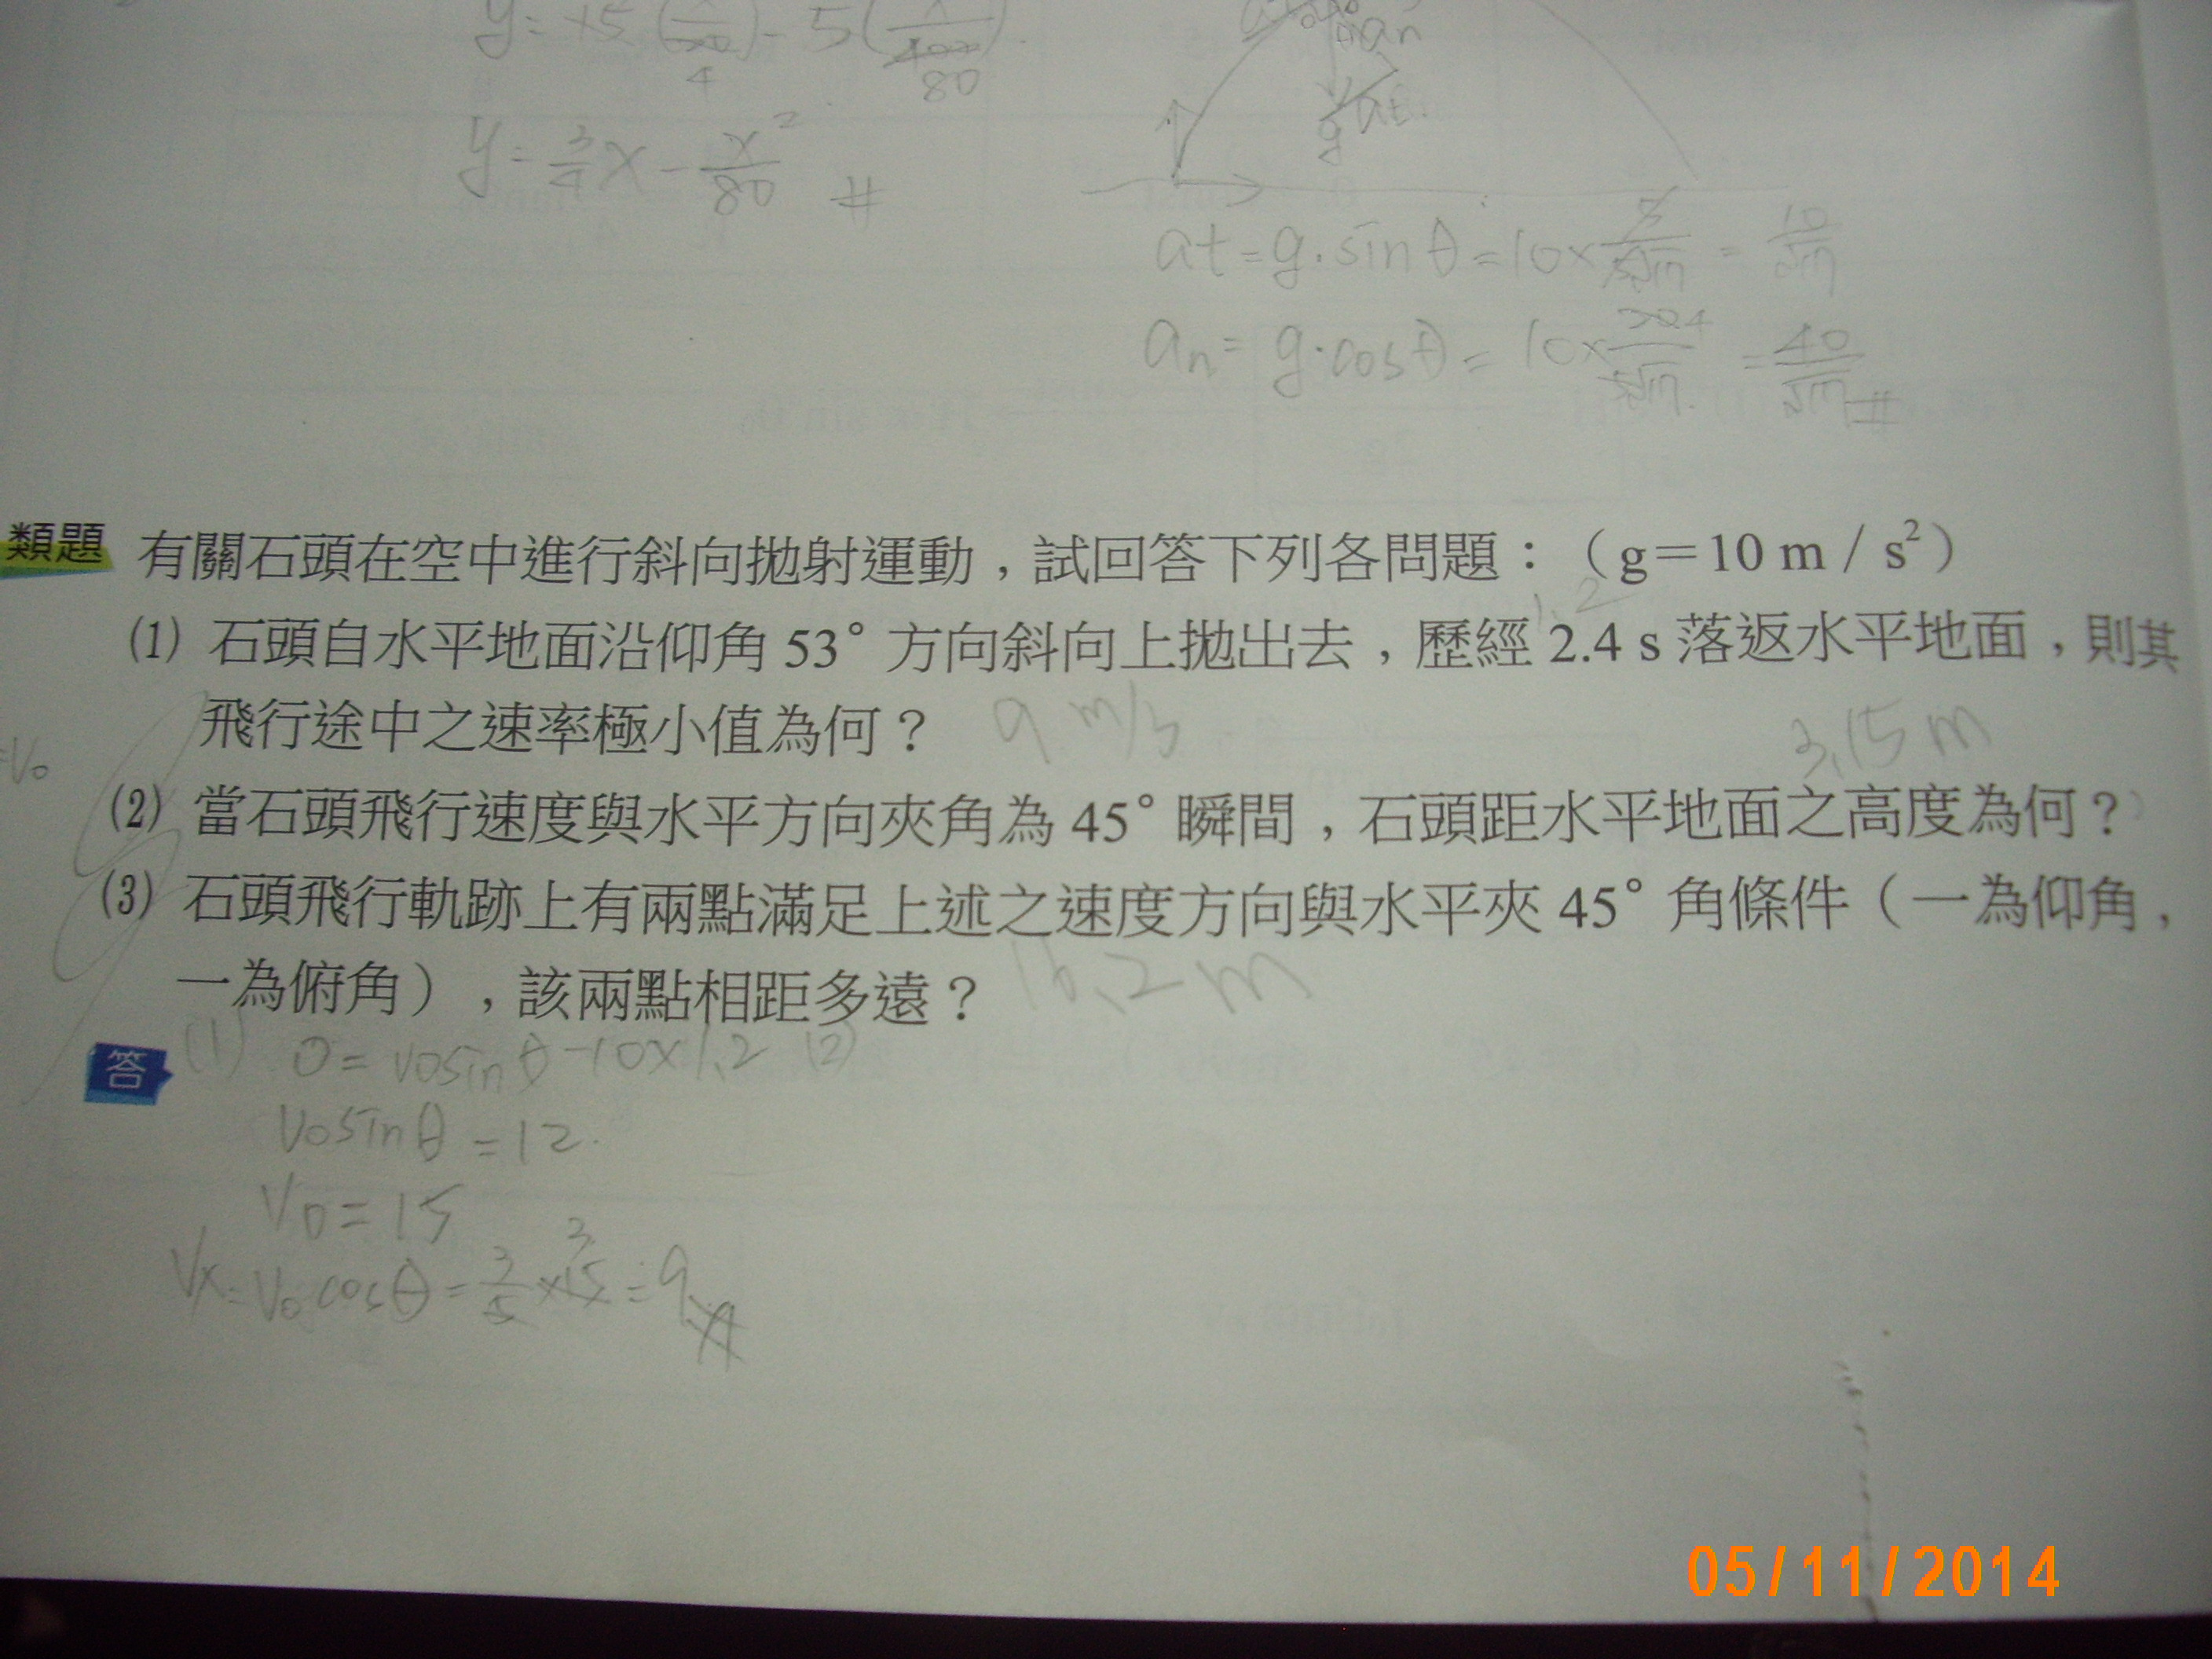 y = 15 ( ) - 5 ( )
4
80
y = 3/4 x - x²/80 #
an
g
at
at = g·sinθ = 10×
an = g·cosθ = 10× #
類題 有關石頭在空中進行斜向拋射運動，試回答下列各問題：（g＝10 m / s²）
1.2
(1) 石頭自水平地面沿仰角 53° 方向斜向上拋出去，歷經 2.4 s 落返水平地面，則其
飛行途中之速率極小值為何？ 9 m/s
3.15 m
=V₀
(2) 當石頭飛行速度與水平方向夾角為 45° 瞬間，石頭距水平地面之高度為何？
(3) 石頭飛行軌跡上有兩點滿足上述之速度方向與水平夾 45° 角條件（一為仰角，
一為俯角），該兩點相距多遠？ 16.2 m
答 (1) 0 = V0sinθ - 10×1.2 (2)
V0sinθ = 12
V0 = 15
Vx = V0 cosθ = 3/5 × 15 = 9 #
3
05/11/2014